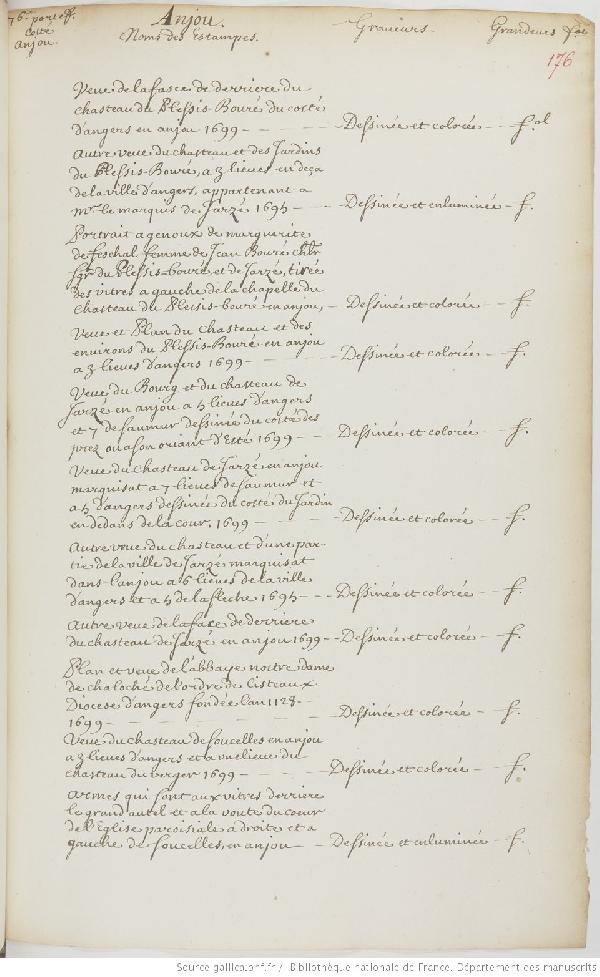 76e. porteff.
Coste
Anjou.
Anjou.
Noms des Estampes.
Graueurs.
Grandeurs
fol
176
Veue de la face de derriere du
chasteau du Plessis-Bouré du costé
d'angers en anjou 1699 - - - Dessinée et colorée - fol
Autre veue du chasteau et des Jardins
du Plessis-Bouré, a 3 lieues en deça
de la ville d'angers, appartenant a
Mr. le marquis de Jarzé 1695 - Dessinée et enluminée - f.
Portrait a genoux de marguerite
de feschal femme de Jean Bouré chlr
sgr. du Plessis-bouré et de Jarzé, tirée
des vitres a gauche de la chapelle du
chasteau du Plessis-bouré en anjou, - Dessinée et colorée - f.
Veue et Plan du chasteau et des
environs du Plessis-Bouré en anjou
a 3 lieues d'angers 1699 - - Dessinée et colorée - f.
Veue du Bourg et du chasteau de
Jarzé en anjou a 5 lieues d'angers
et 7 de saumur dessinée du costé des
prez ou a son oriant d'Esté 1699 - - Dessinée et colorée - f.
Veue du chasteau de Jarzé en anjou
marquisat a 7 lieues de saumur et
a 5 d'angers dessinée du costé du Jardin
en dedans de la cour. 1699 - - - Dessinée et colorée - f.
Autre veue du chasteau et d'une par-
tie de la ville de Jarzé marquisat
dans l'anjou a 6 lieues de la ville
d'angers et a 5 de la fleche 1695 - - Dessinée et colorée - f.
Autre veue de la face de derriere
du chasteau de Jarzé en anjou 1699 - Dessinée et colorée - f.
Plan et veue de l'abbaye nostre dame
de chaloché de l'ordre de Cisteaux
Diocese d'angers fondée l'an 1128 -
1699 - - - Dessinée et colorée - f.
Veue du chasteau de soucelles en anjou
a 3 lieues d'angers et a une lieue du
chasteau du verger 1699 - - - Dessinée et colorée - f.
Armes qui sont aux vitres derriere
le grand autel et a la voute du cœur
de l'Eglise paroisiale a droite et a
gauche de soucelles, en anjou - - Dessinée et enluminée - f.
Source gallica.bnf.fr / Bibliothèque nationale de France. Département des manuscrits